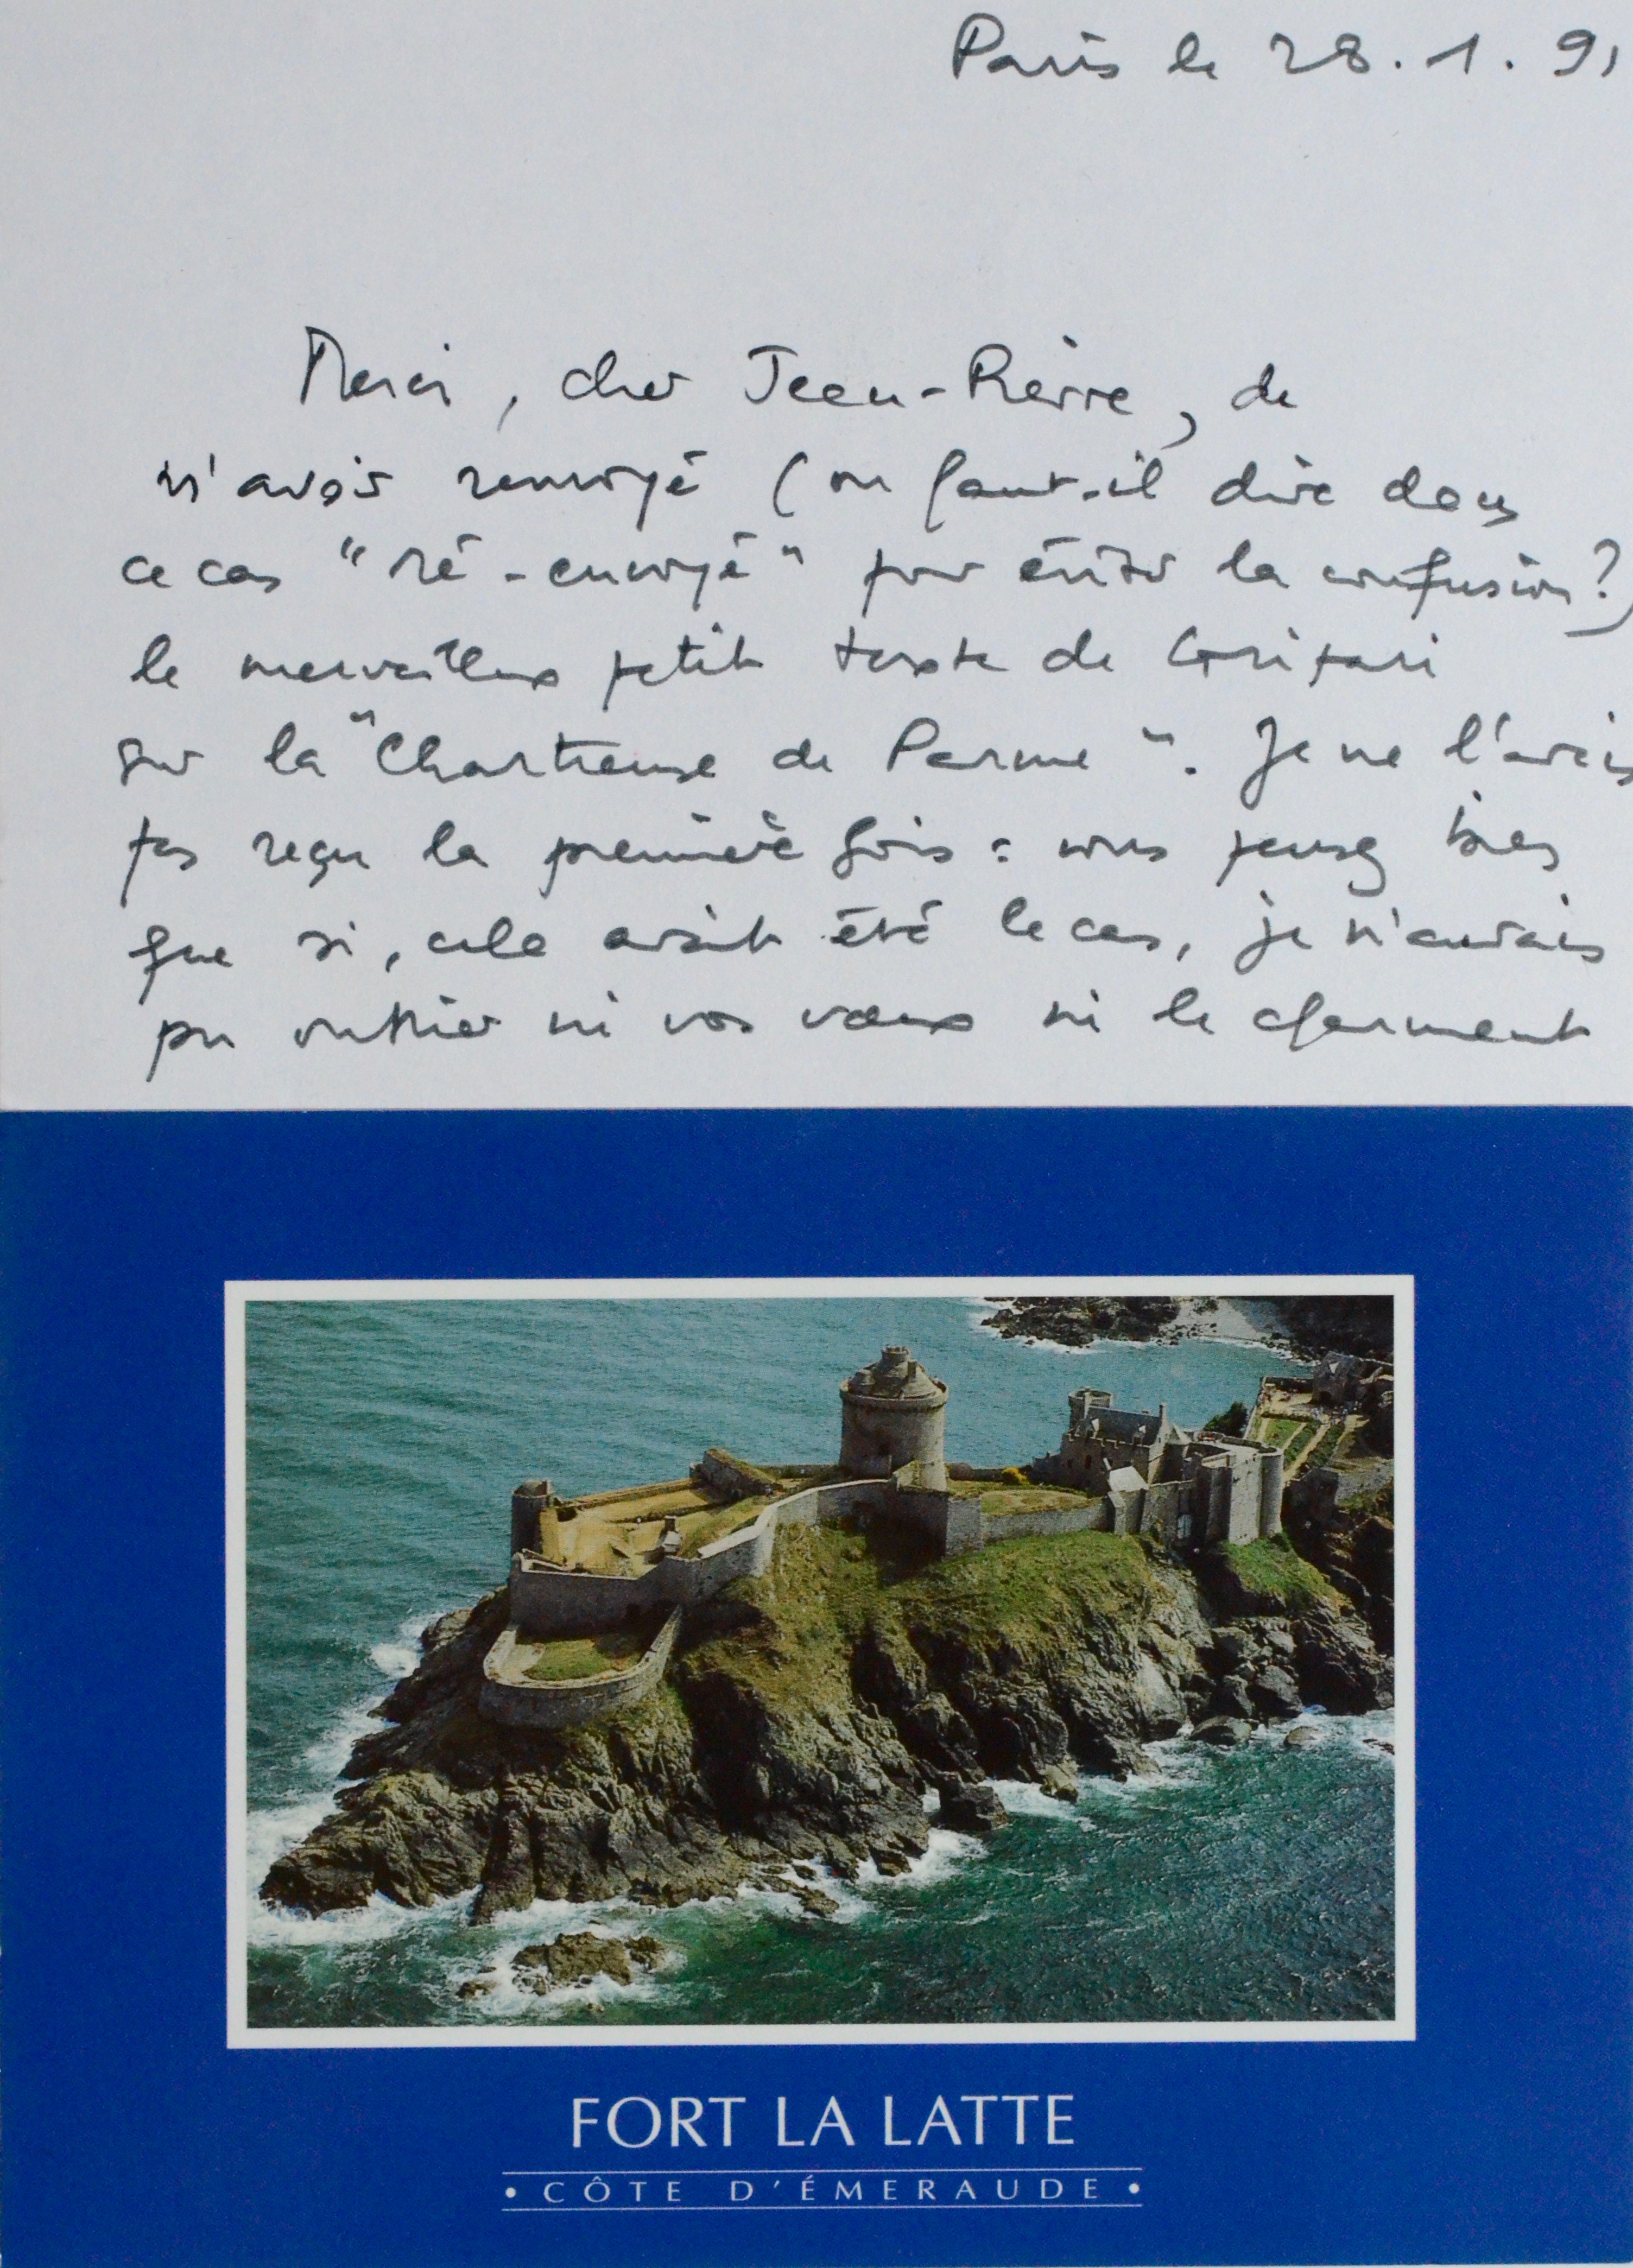 Paris le 28.1.91
Merci, cher Jean-Pierre, de
m'avoir renvoyé (ou faut-il dire dans
ce cas "ré-envoyé" pour éviter la confusion?)
le merveilleux petit texte de
sur la "Chartreuse de Parme". Je ne l'avais
pas reçu la première fois : vous pensez bien
que si, cela avait été le cas, je n'aurais
pu oublier ni vos vœux ni le charmant
FORT LA LATTE
• CÔTE D'ÉMERAUDE •